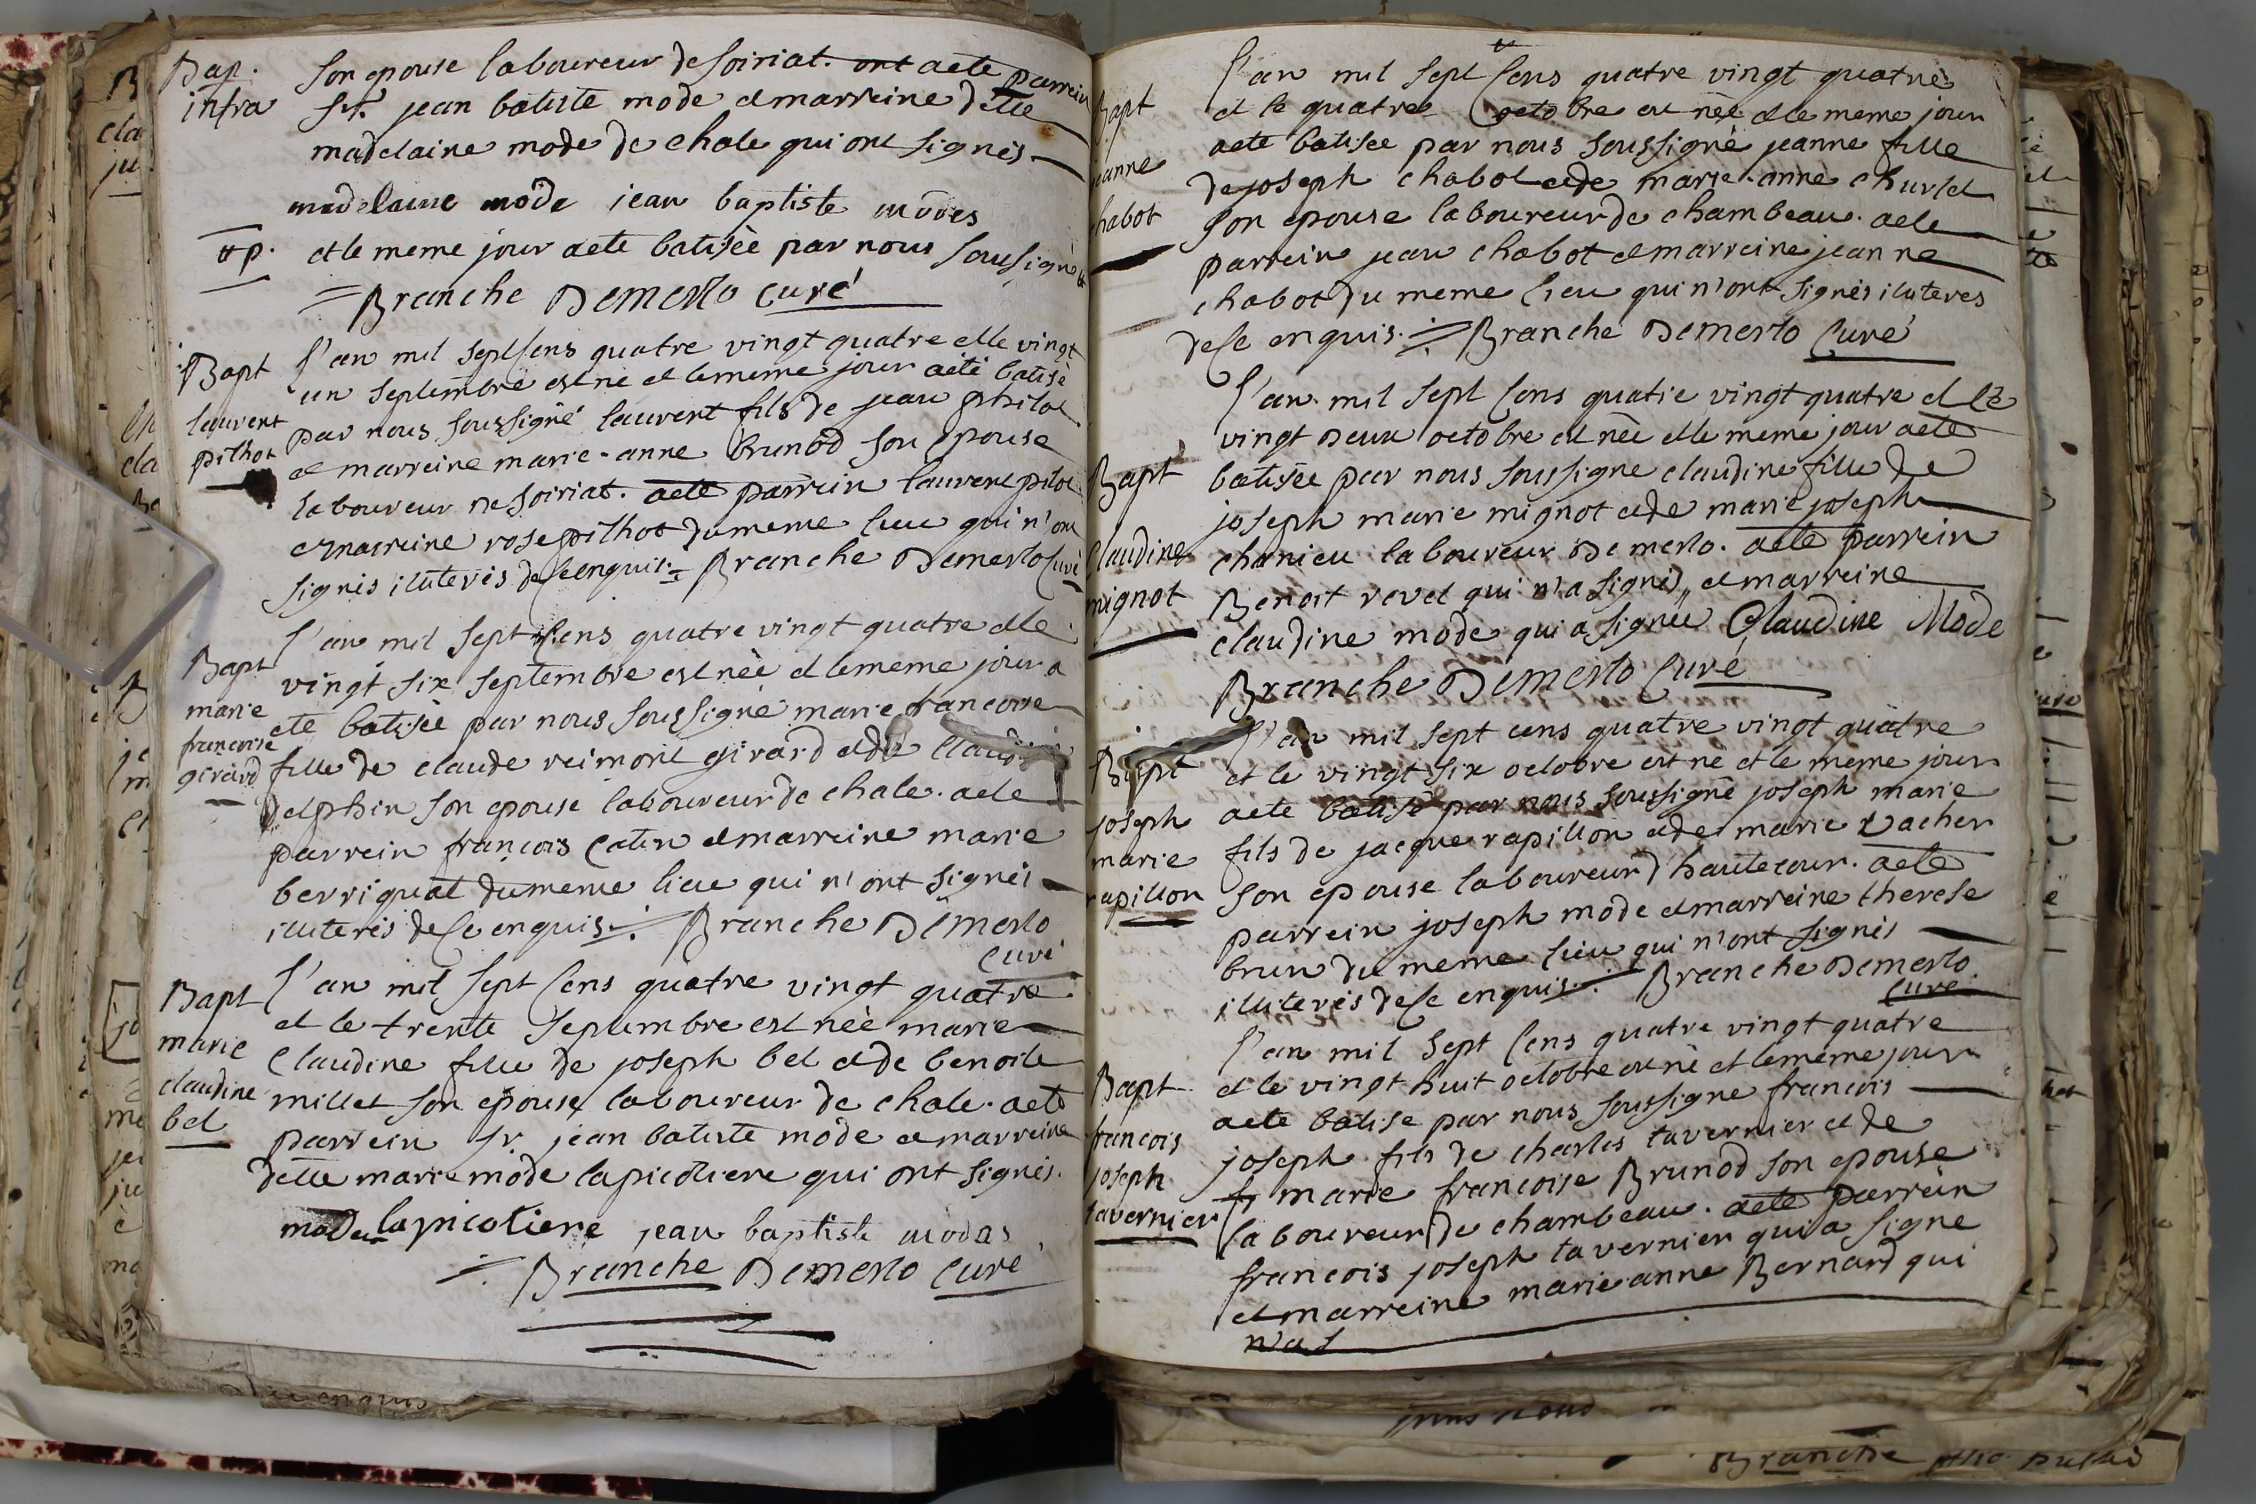 Bap.
infra
son epouse laboureur de soiriat. ont aete parrein
sr. jean batiste mode et marreine dlle
madelaine mode de chale qui ont signés
madelaine mode jean baptiste modes
et le meme jour aete batisée par nous soussigné
Branche Demerlo curé
Bapt
laurent
pilhot
l'an mil sept cens quatre vingt quatre et le vingt
un septembre est né et le meme jour aété batisé
par nous soussigné laurent fils de jean philot
et marreine marie-anne brunod son epouse
laboureur de soiriat. aete parrein laurent pilot
et marreine rose pilhot du meme lieu qui n'ont
signés iliterés de ce enquis. Branche Demerlo curé
Bapt
marie
francoise
girard
l'an mil sept cens quatre vingt quatre et le
vingt six septembre est née et le meme jour a
eté batisée par nous soussigné marie francoise
fille de claude reimont girard et de
delphin son epouse laboureur de chale. aete
parrein françois catin et marreine marie
berriguat du meme lieu qui n'ont signés
illiterés de ce enquis. Branche Demerlo
curé
Bapt
marie
claudine
bel
l'an mil sept cens quatre vingt quatre
et le trente septembre est née marie
claudine fille de joseph bel et de benoite
millet son epouse laboureur de chale. aete
parrein sr. jean batiste mode et marreine
dlle marie mode lapicotiere qui ont signés.
mode lapicotiere jean baptiste modas
Branche Demerlo curé
Bapt
jeanne
chabot
l'an mil sept cens quatre vingt quatre
et le quatre octobre est née et le meme jour
aete batisée par nous soussigné jeanne fille
de joseph chabot et de marie-anne churlet
son epouse laboureur de chambeau. aete
parrein jean chabot et marreine jeanne
chabot du meme lieu qui n'ont signés iliteres
de ce enquis. Branche Demerlo curé
Bapt
Claudine
mignot
l'an mil sept cens quatre vingt quatre et le
vingt deux octobre est née et le meme jour aete
batisée par nous soussigné claudine fille de
joseph marie mignot et de marie joseph
chanieu laboureur de merlo. aete parrein
Benoit revet qui n'a signé, et marreine
claudine mode qui a signée Claudine Mode
Branche Demerlo curé
Bapt
joseph
marie
rapillon
l'an mil sept cens quatre vingt quatre
et le vingt six octobre est né et le meme jour
aete batisé par nous soussigné joseph marie
fils de jacque rapillon et de marie vacher
son epouse laboureur d hautecour. aete
parrein joseph mode et marreine therese
brun du meme lieu qui n'ont signés
illiterés de ce enquis. Branche Demerlo.
curé
Bapt
francois
joseph
tavernier
l'an mil sept cens quatre vingt quatre
et le vingt huit octobre est né et le meme jour
aete batise par nous soussigne francois
joseph fils de charles tavernier et de
fr marie francoise Brunod son epouse
laboureur de chambeau. aete parrein
francois joseph tavernier qui a signe
et marreine marie anne Bernard qui
n'a s